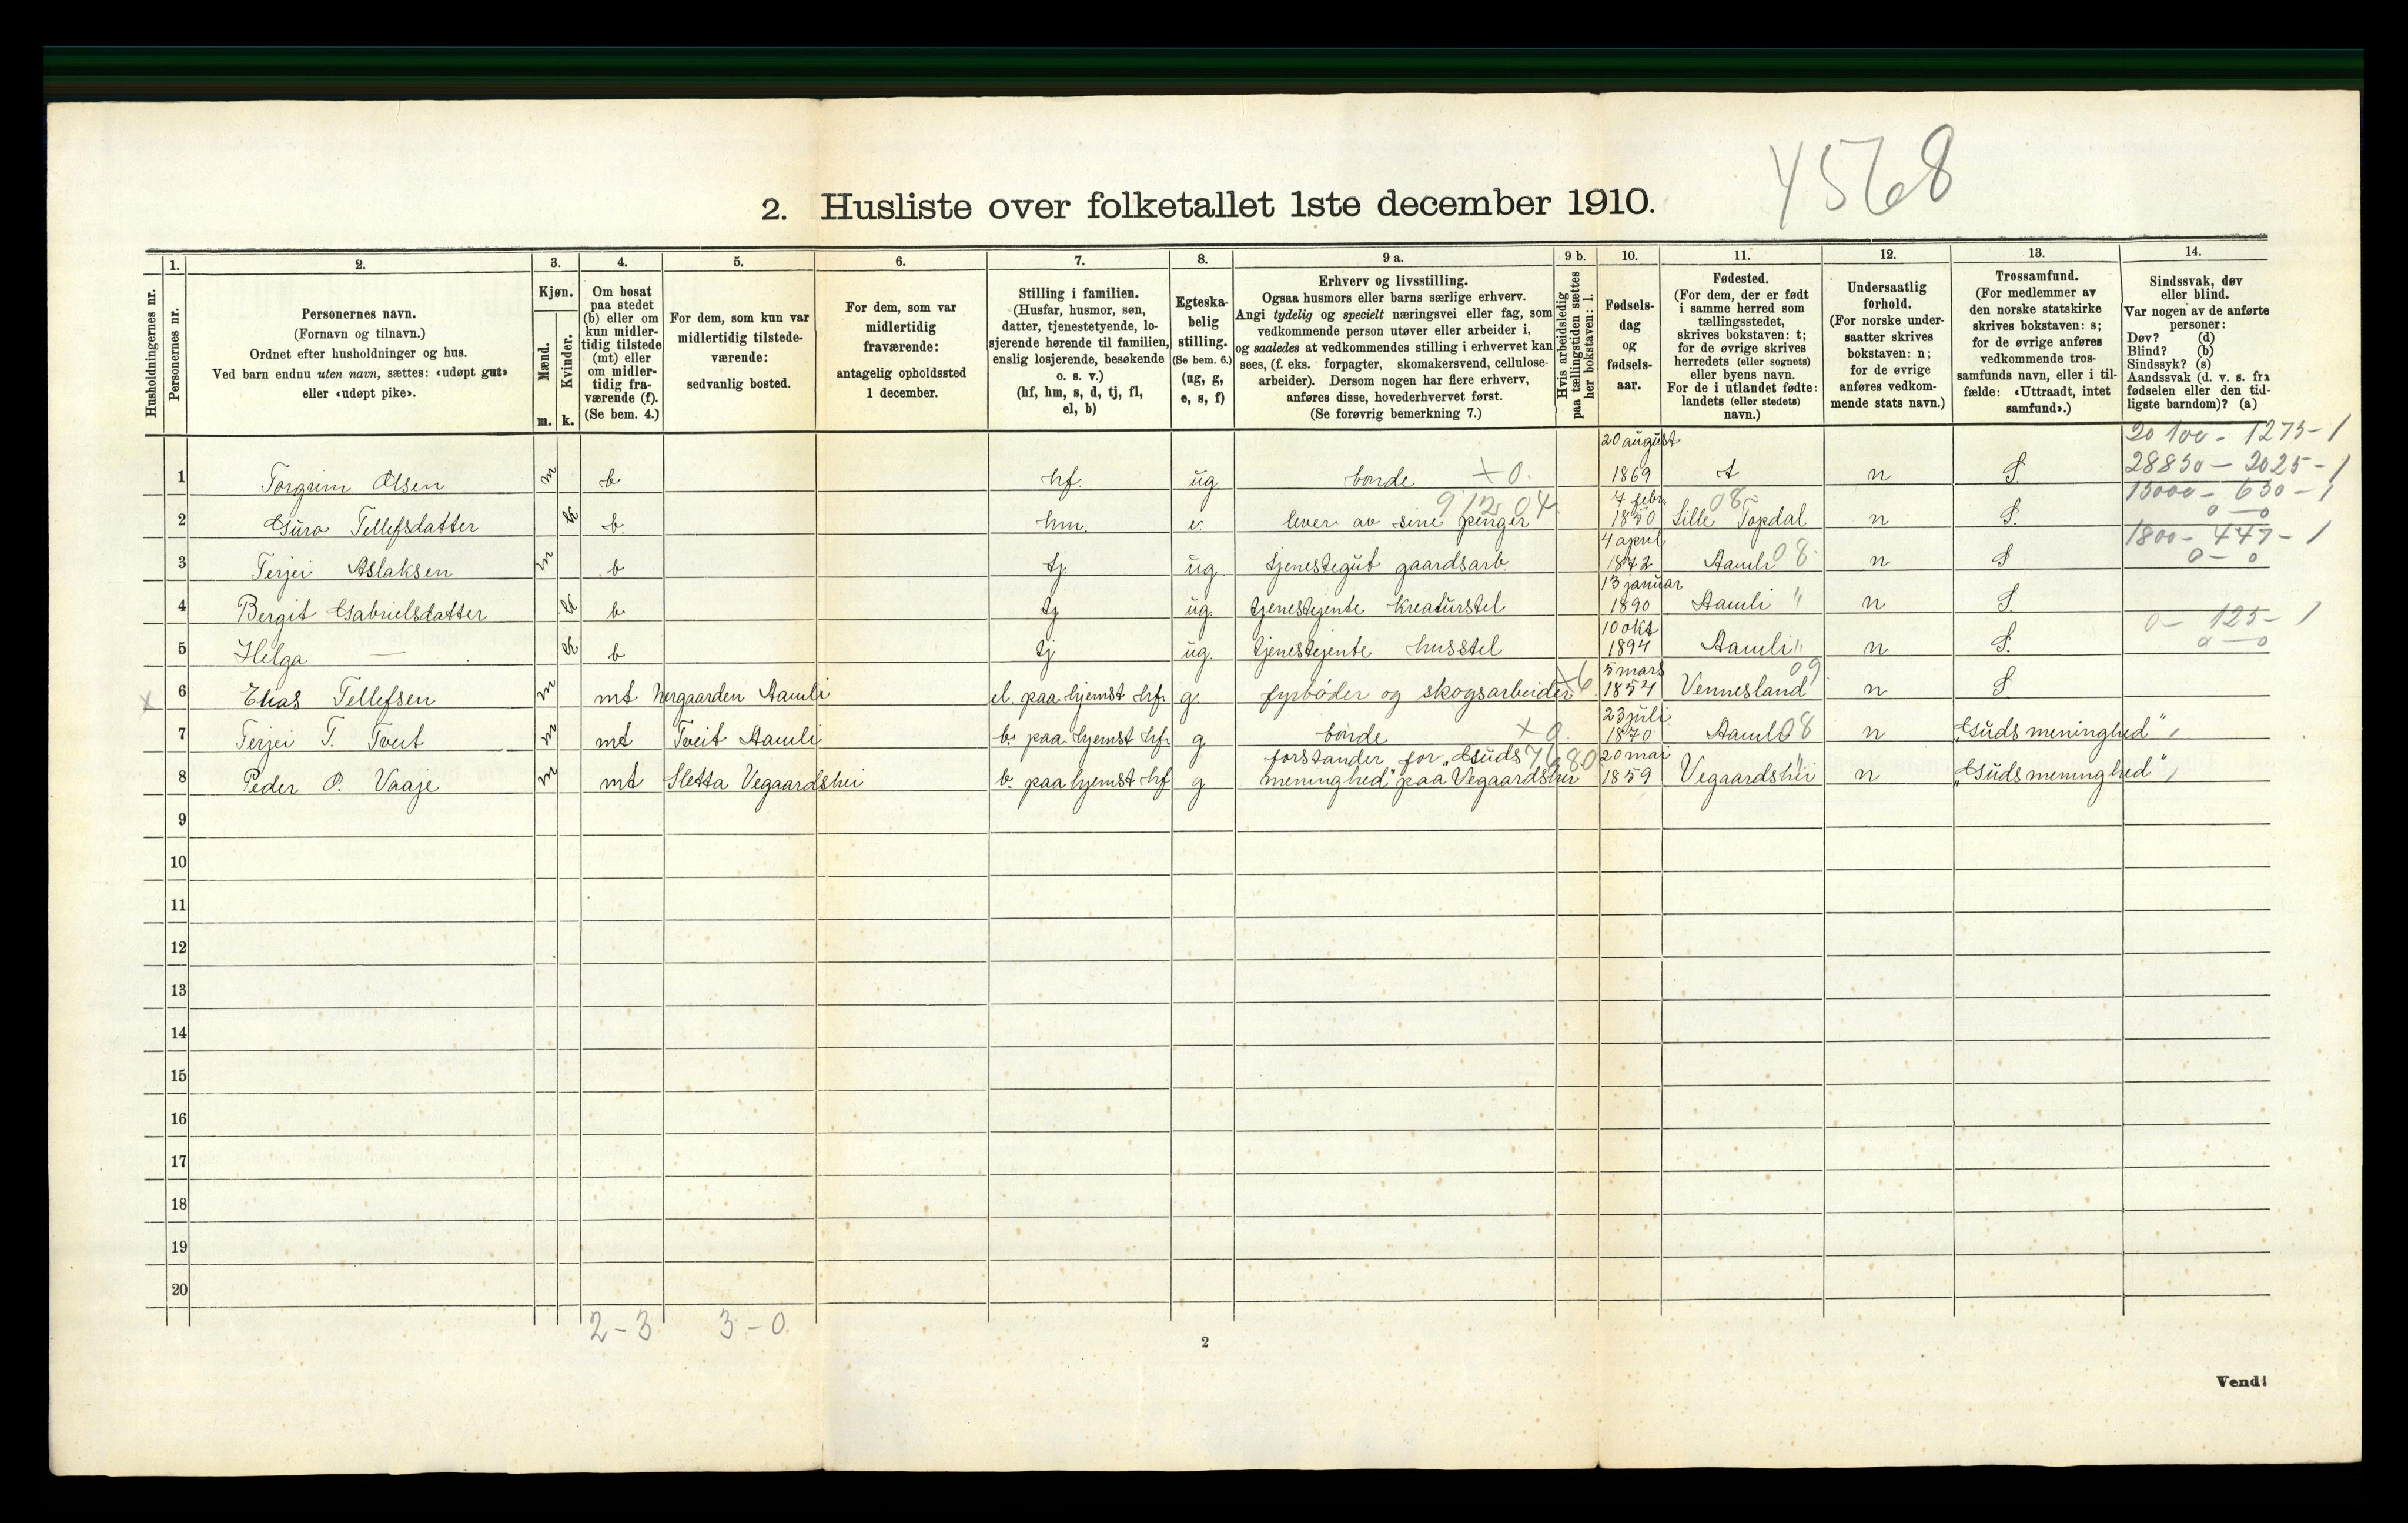 4568
2. Husliste over folketallet 1ste december 1910.
Husholdningernes nr.
1.
Personernes nr.
2.
Personernes navn.
(Fornavn og tilnavn.)
Ordnet efter husholdninger og hus.
Ved barn endnu uten navn, sættes: «udøpt gut»
eller «udøpt pike».
3.
Kjøn.
Mænd.
Kvinder.
m. k.
4.
Om bosat
paa stedet
(b) eller om
kun midler-
tidig tilstede
(mt) eller
om midler-
tidig fra-
værende (f).
(Se bem. 4.)
5.
For dem, som kun var
midlertidig tilstede-
værende:
sedvanlig bosted.
6.
For dem, som var
midlertidig
fraværende:
antagelig opholdssted
1 december.
7.
Stilling i familien.
(Husfar, husmor, søn,
datter, tjenestetyende, lo-
sjerende hørende til familien,
enslig losjerende, besøkende
o. s. v.)
(hf, hm, s, d, tj, fl,
el, b)
8.
Egteska-
belig
stilling.
(Se bem. 6.)
(ug, g,
e, s, f)
9 a.
Erhverv og livsstilling.
Ogsaa husmors eller barns særlige erhverv.
Angi tydelig og specielt næringsvei eller fag, som
vedkommende person utøver eller arbeider i,
og saaledes at vedkommendes stilling i erhvervet kan
sees, (f. eks. forpagter, skomakersvend, cellulose-
arbeider). Dersom nogen har flere erhverv,
anføres disse, hovederhvervet først.
(Se forøvrig bemerkning 7.)
9 b.
Hvis arbeidsledig
paa tællingstiden sættes
her bokstaven: l.
10.
Fødsels-
dag
og
fødsels-
aar.
11.
Fødested.
(For dem, der er født
i samme herred som
tællingsstedet,
skrives bokstaven: t;
for de øvrige skrives
herredets (eller sognets)
eller byens navn.
For de i utlandet fødte:
landets (eller stedets)
navn.)
12.
Undersaatlig
forhold.
(For norske under-
saatter skrives
bokstaven: n;
for de øvrige
anføres vedkom-
mende stats navn.)
13.
Trossamfund.
(For medlemmer av
den norske statskirke
skrives bokstaven: s;
for de øvrige anføres
vedkommende tros-
samfunds navn, eller i til-
fælde: «Uttraadt, intet
samfund».)
14.
Sindssvak, døv
eller blind.
Var nogen av de anførte
personer:
Døv? (d)
Blind? (b)
Sindssyk? (s)
Aandssvak (d. v. s. fra
fødselen eller den tid-
ligste barndom)? (a)
20100 - 1275 - 1
28850 - 2025 - 1
15000 - 650 - 1
0 - 0
1800 - 447 - 1
0 - 0
0 - 125 - 1
0 - 0
1 Torgrim Olsen m b hf. ug bonde x 0. 20 august 1869 t n S.
2 Guro Tellefsdatter k b. hm. e. lever av sine penger 9112 04 7 febr. 1850 Lille Topdal 08 n S.
3 Terjei Aslaksen m b tj. ug tjenestegut gaardsarb. 4 april 1872 Aamli 08 n S
4 Bergit Gabrielsdatter k b tj ug. tjenestejente kreaturstel 13 januar 1890 Aamli " n S
5 Helga — k b tj ug. tjenestejente husstel 10 okt 1894 Aamli " n S.
x 6 Elias Tellefsen m mt Nergaarden Aamli el. paa hjemst hf. g. fyrbøder og skogsarbeider x6 5 mars 1854 Vennesland 09 n S.
7 Terjei T. Tveit m mt Tveit Aamli b. paa hjemst hf. g bonde x 0. 23 juli 1870 Aamli 08 n „Guds meninghed"
8 Peder O. Vaaje m mt Sletta Vegaardshei b. paa hjemst hf g forstander for „Guds meninghed" paa Vegaardshei 7680 20 mai 1859 Vegaardshei " n „Guds meninghed"
9
10
11
12
13
14
15
16
17
18
19
20
2 - 3 3 - 0
2
Vend!